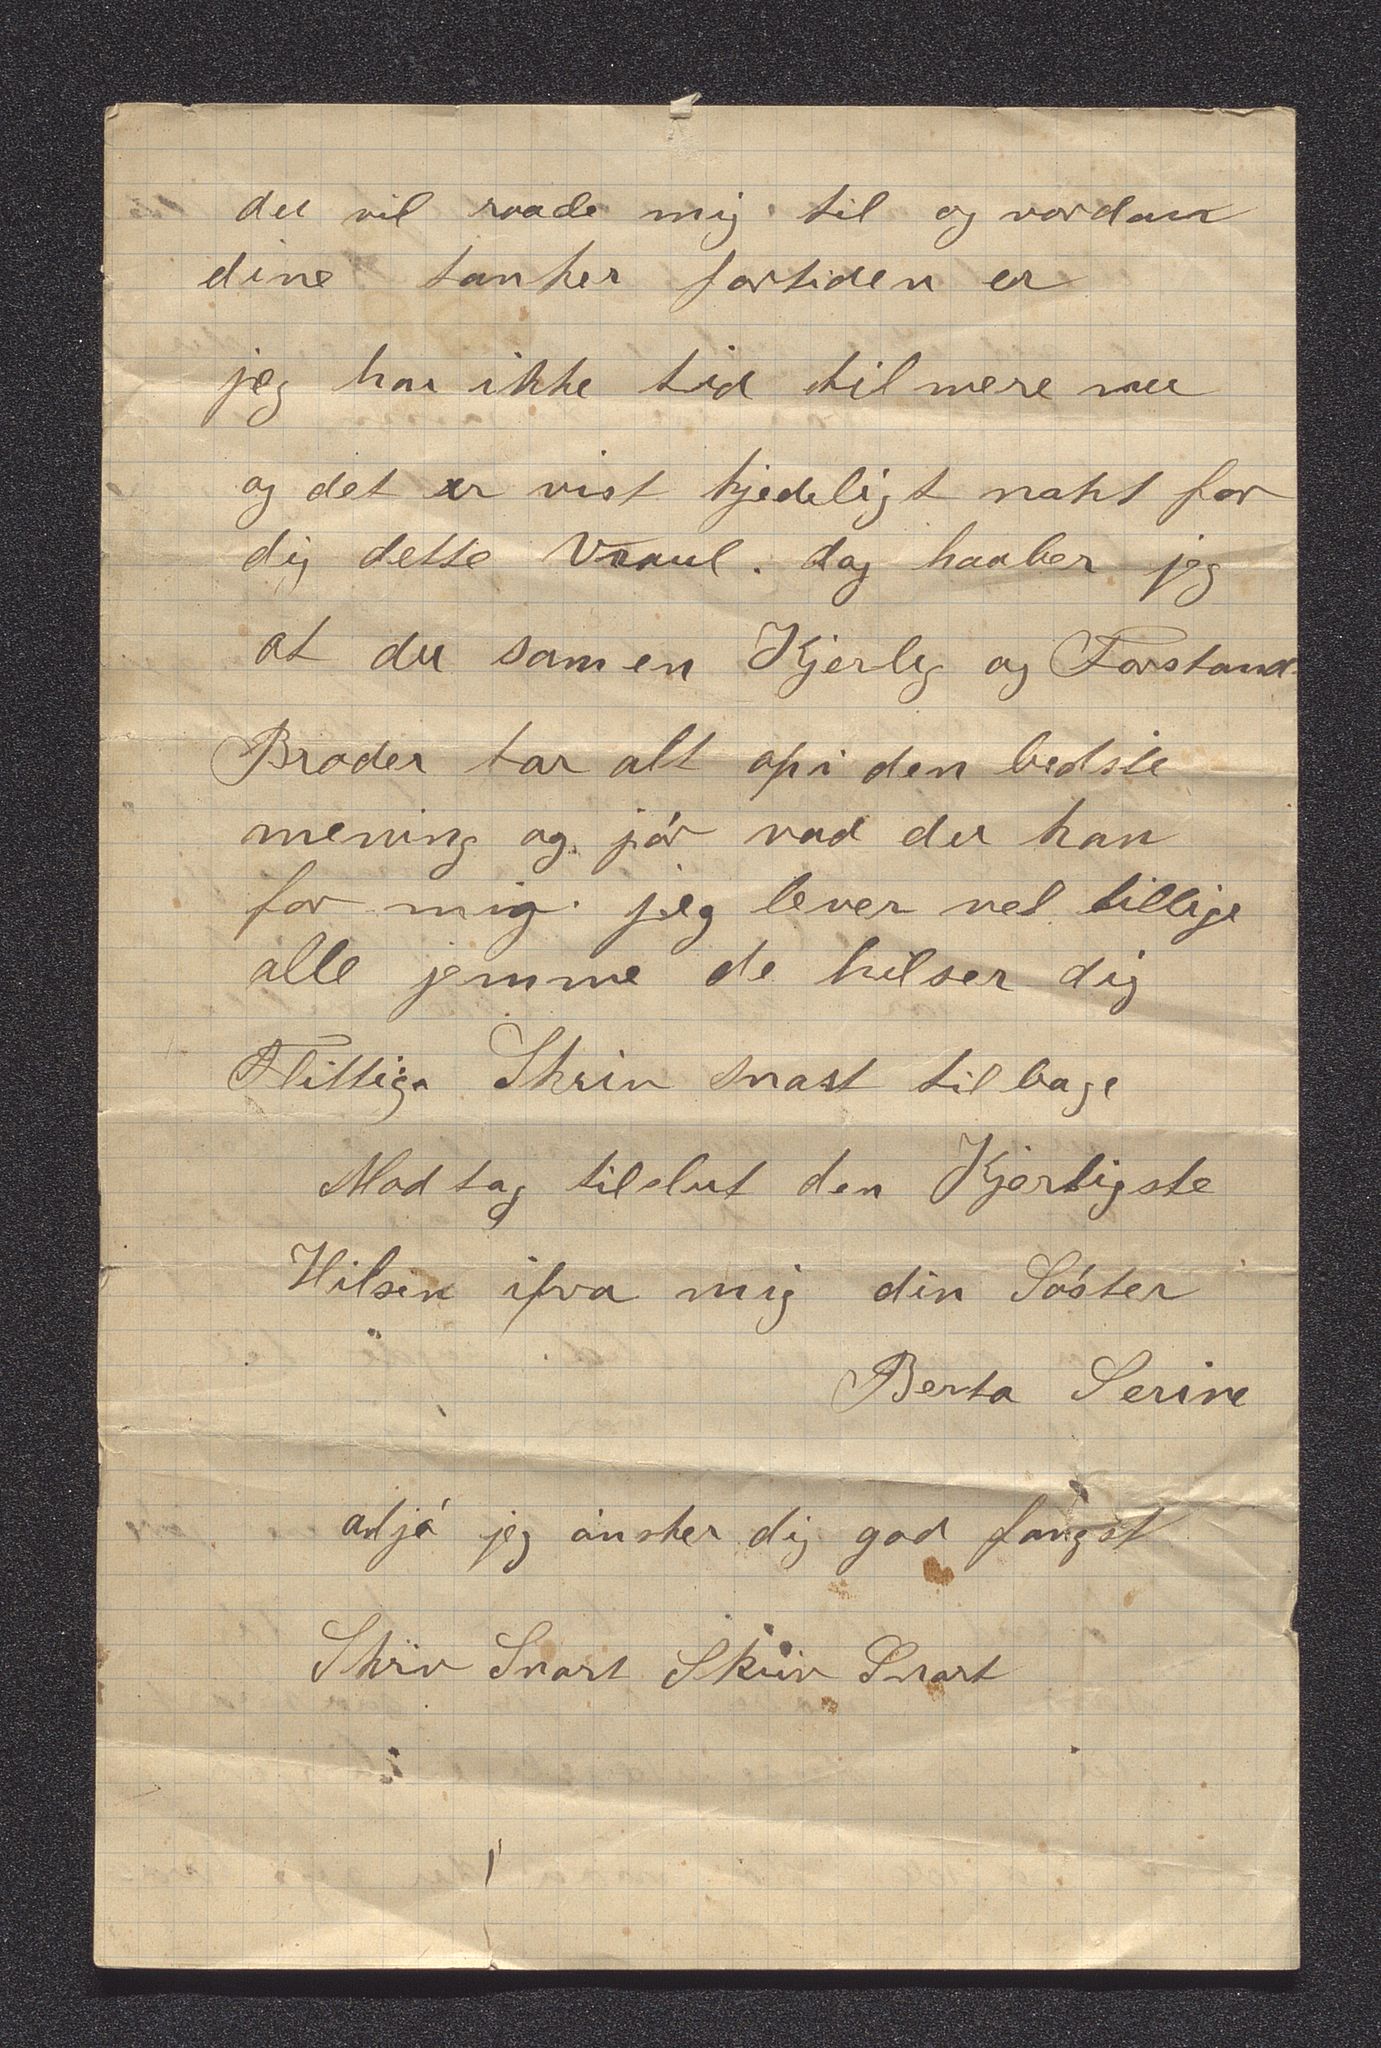 du vil raade mig til og vordan
dine tanker fortiden er
jeg har ikke tid til mere nu
og det er vist kjedeligt nokt for
dig dette Vraul. dog haaber jeg
at du som en Kjerlig og Forstand
Broder tar alt op i den bedste
mening og jør vad du kan
for mig. jeg lever vel tillige
alle jemme de hilser dig
Flittiga Skriv snart tilbage
Modtag tilslut den Kjerligste
Hilsen ifra mig din Søster
Berta Serine
adjø jeg ønsker dig god fangst
Skriv Snart Skriv Snart